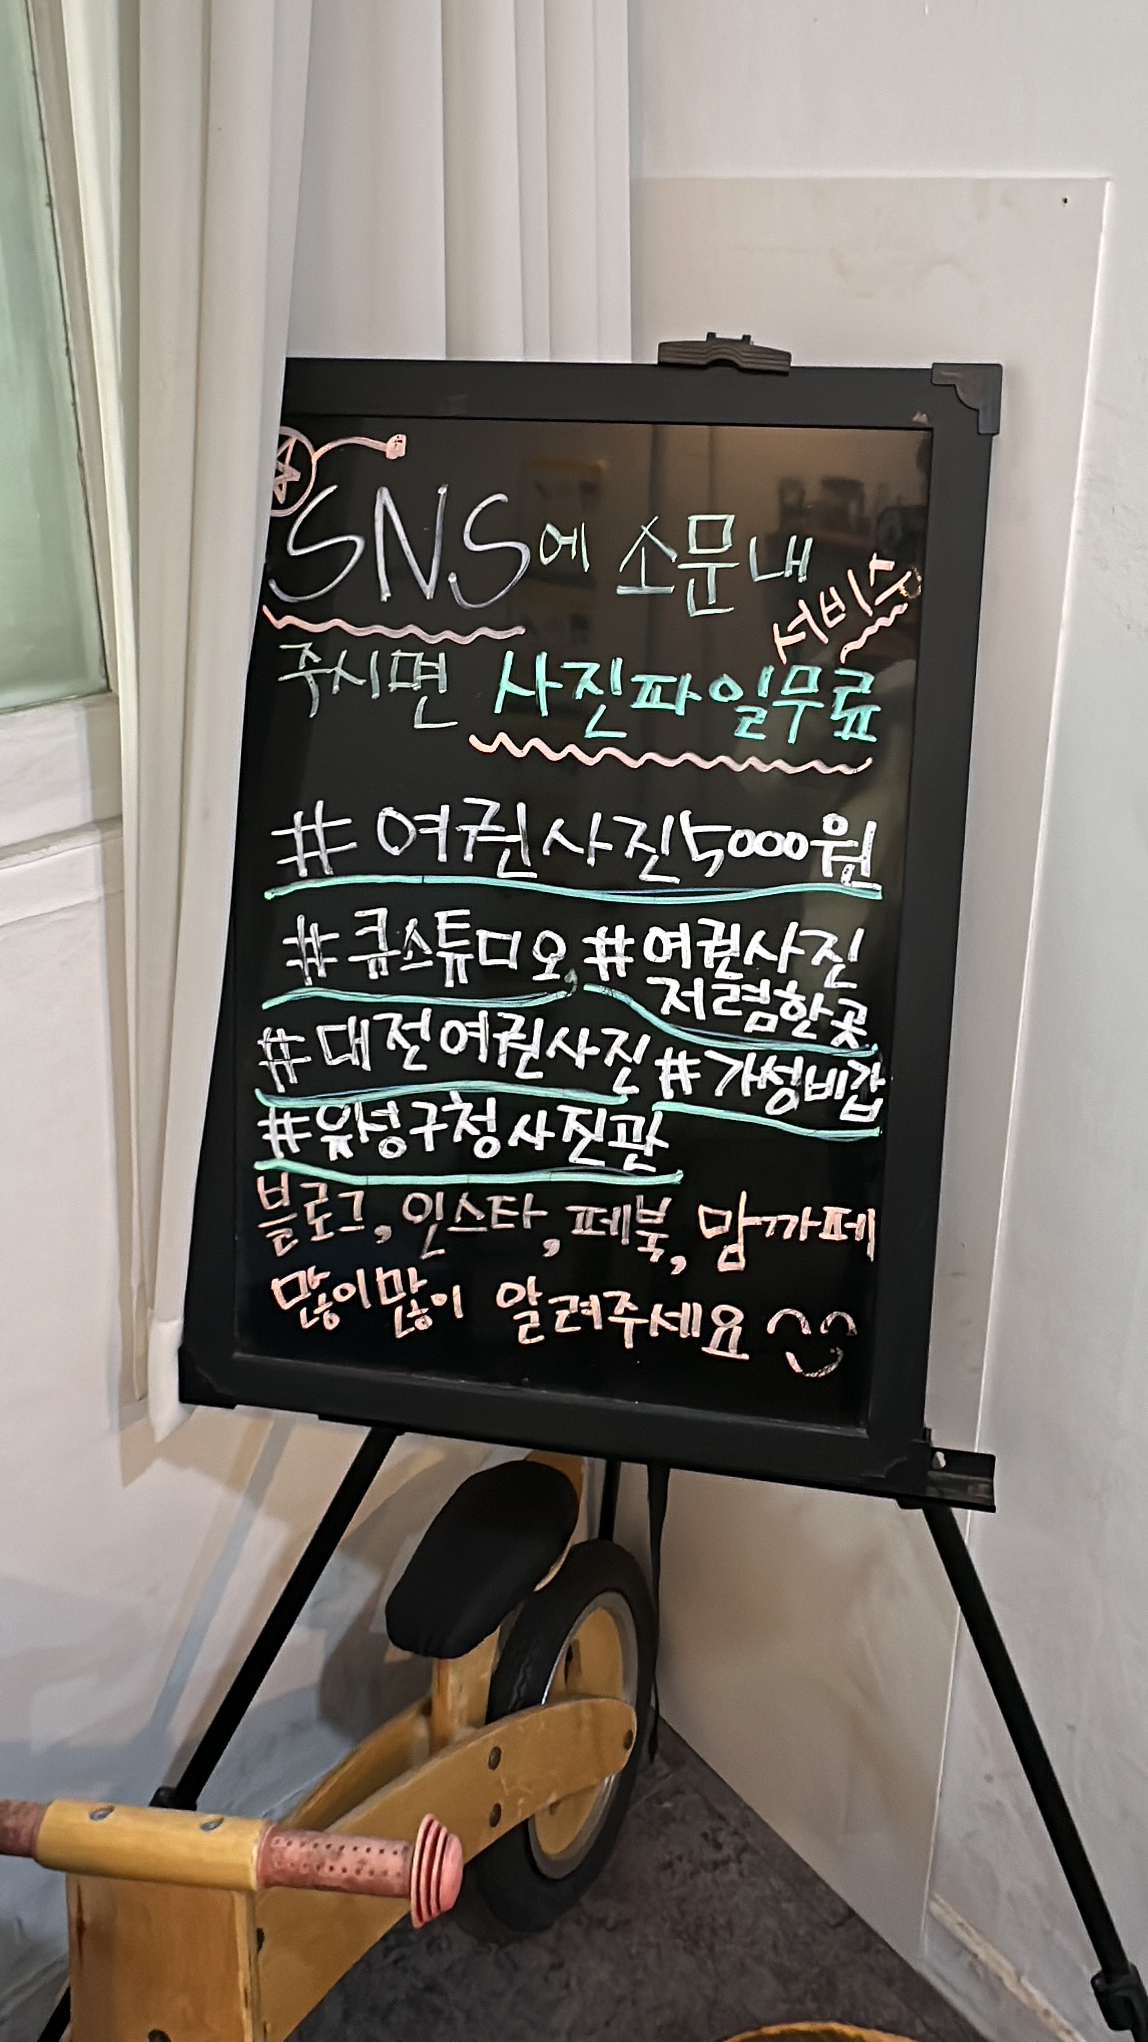 SNS에 소문내
주시면 사진파일무료 서비스
# 여권사진5000원
#큐스튜디오, #여권사진
저렴한곳
#대전여권사진 #가성비갑
#유성구청사진관
블로그, 인스타, 페북, 맘까페
많이많이 알려주세요